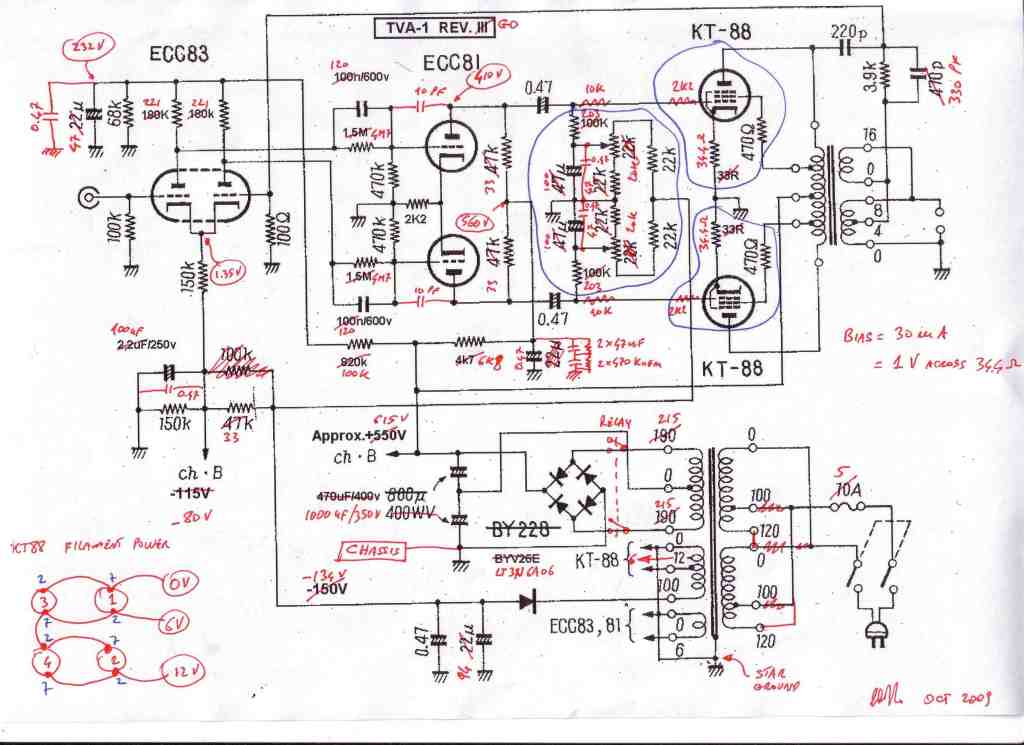 TVA-1 REV. III GD
KT-88
220p
3.9k
470p
330 PF
232V
ECC83
120
100n/600v
10 PF
ECC81
410V
0.47
10K
2K2
0.47
22µ
47
68k
221
180K
221
180k
1,5M 4M7
47k
33
203
100K
22K
22k
470Ω
34.4Ω
33R
16
0
8
4
0
470k
2K2
560V
100
47µ
0.47
22k
20K
100k
100Ω
1.35V
150k
470k
1,5M 4M7
10 PF
47k
33
100
47µ
0.47
22k
20K
22K
22k
100K
203
10K
2K2
34.4Ω
33R
470Ω
100n/600v
120
0.47
KT-88
100µF
2,2uF/250v
100k
820k
100K
4k7 6K8
0.47
22µ
2 x 47µF
2 x 470 KOHM
BIAS = 30 mA
= 1V ACROSS 34.4 Ω
0.47
150k
47k
33
615V
Approx.+550V
ch·B
RELAY
215
190
0
0
ch·B
-115V
-80V
470uF/400v 800µ
1000µF/350V 400WV
BY228
215
190
100
120
5
10A
KT88 FILAMENT POWER
CHASSIS
BYV26E
LT3N6A06
KT-88
0
6
12
0
-134V
-150V
100
100
2
7
0V
3
1
7
2
6V
2
7
4
2
7
2
12V
0.47
94
22µ
ECC83, 81
0
6
120
STAR
GROUND
OCT 2009